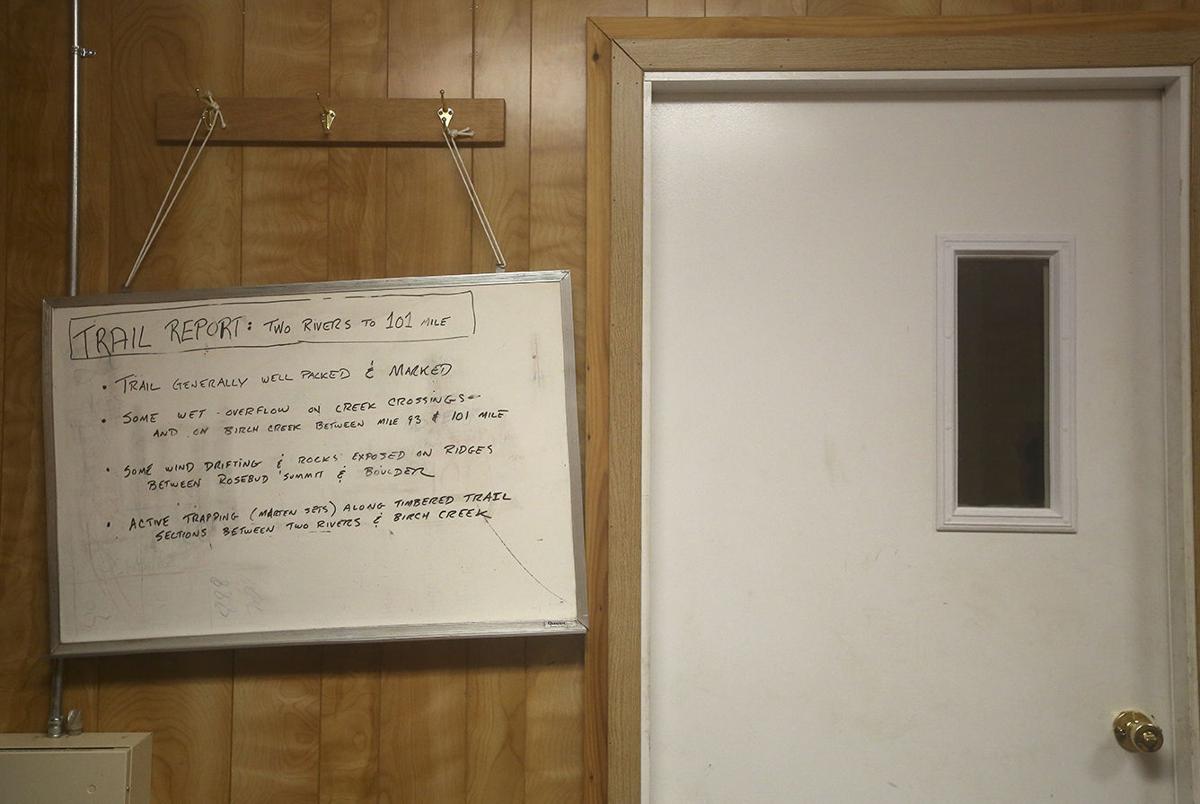 TRAIL REPORT: TWO RIVERS TO 101 MILE
• TRAIL GENERALLY WELL PACKED & MARKED
• SOME WET OVERFLOW ON CREEK CROSSINGS
AND ON BIRCH CREEK BETWEEN MILE 93 & 101 MILE
• SOME WIND DRIFTING & ROCKS EXPOSED ON RIDGES
BETWEEN ROSEBUD SUMMIT & BOULDER
• ACTIVE TRAPPING (MARTEN SETS) ALONG TIMBERED TRAIL
SECTIONS BETWEEN TWO RIVERS & BIRCH CREEK